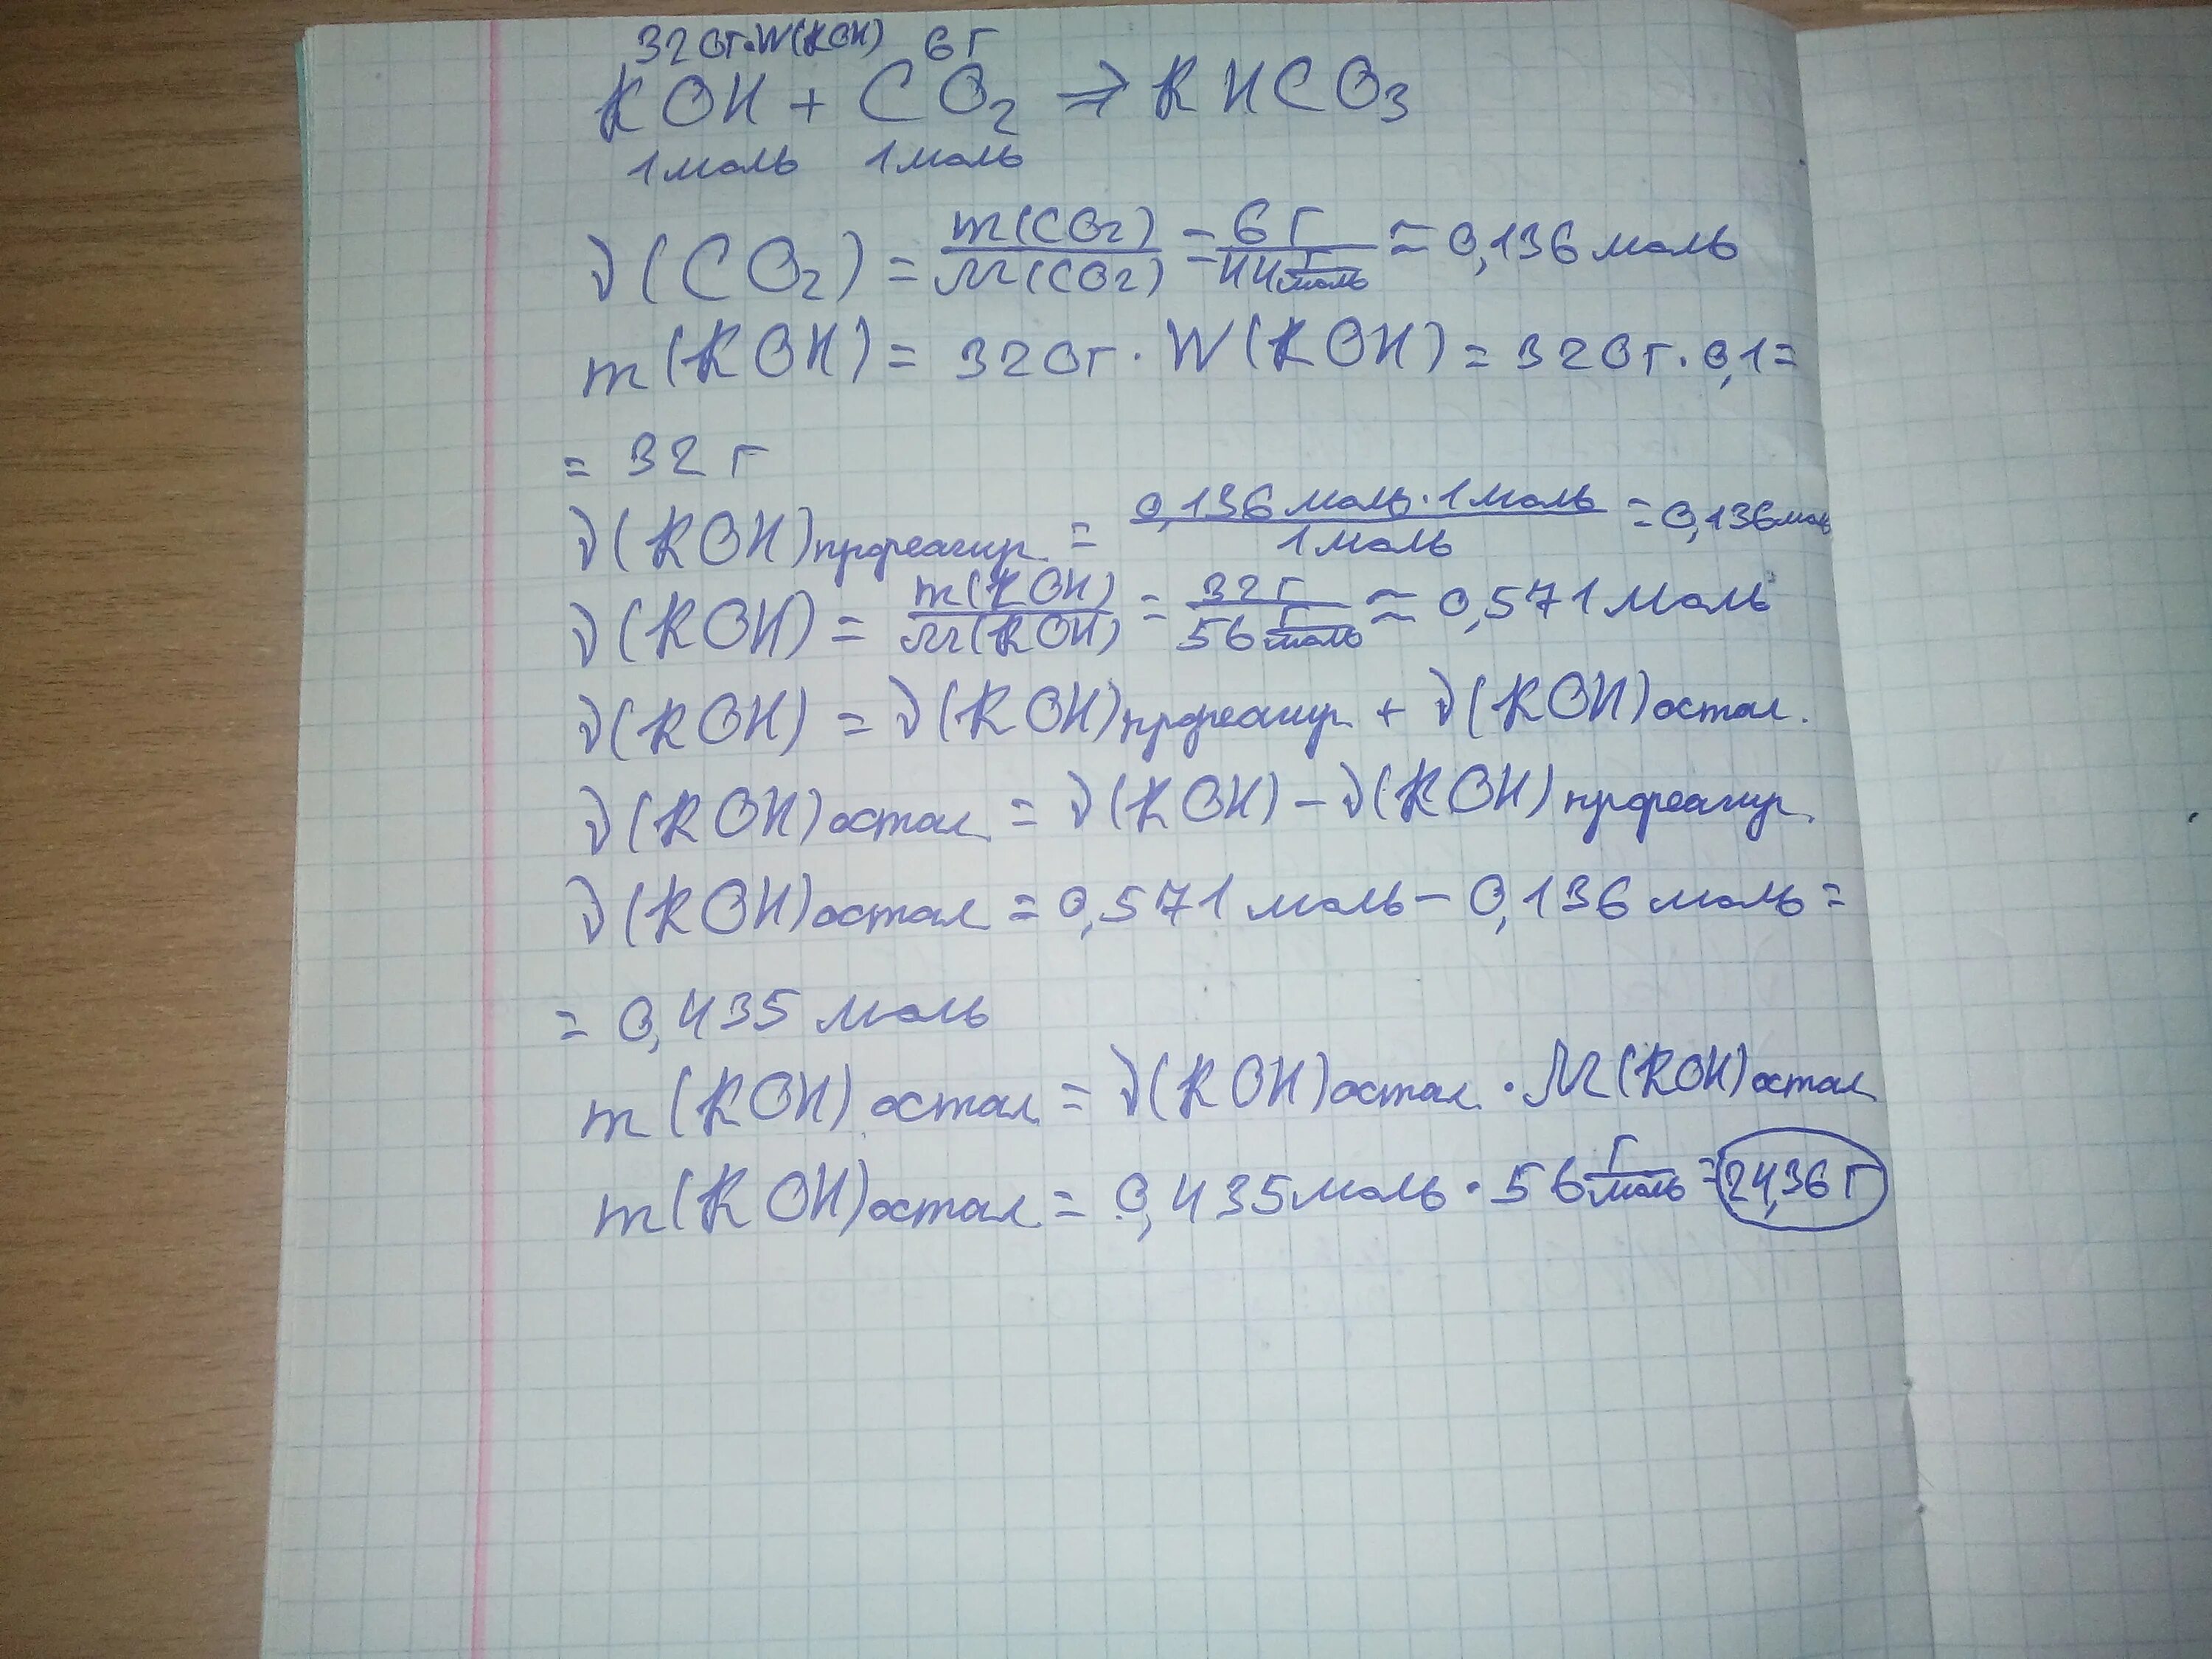 320г·W(KOH) 6г
KOH + CO₂ ⇒ KHCO₃
1моль 1моль
ν(CO₂) = m(CO₂)/M(CO₂) = 6г/44 г/моль ≈ 0,136 моль
m(KOH) = 320г · W(KOH) = 320г · 0,1 =
= 32 г
ν(KOH)прореагир. = 0,136 моль · 1 моль/1 моль = 0,136моль
ν(KOH) = m(KOH)/M(KOH) = 32г/56 г/моль ≈ 0,571 моль
ν(KOH) = ν(KOH)прореагир + ν(KOH)остал.
ν(KOH)остал. = ν(KOH) – ν(KOH)прореагир.
ν(KOH)остал = 0,571 моль – 0,136 моль =
= 0,435 моль
m(KOH)остал. = ν(KOH)остал. · M(KOH)остал.
m(KOH)остал. = 0,435моль · 56 г/моль = 24,36 г